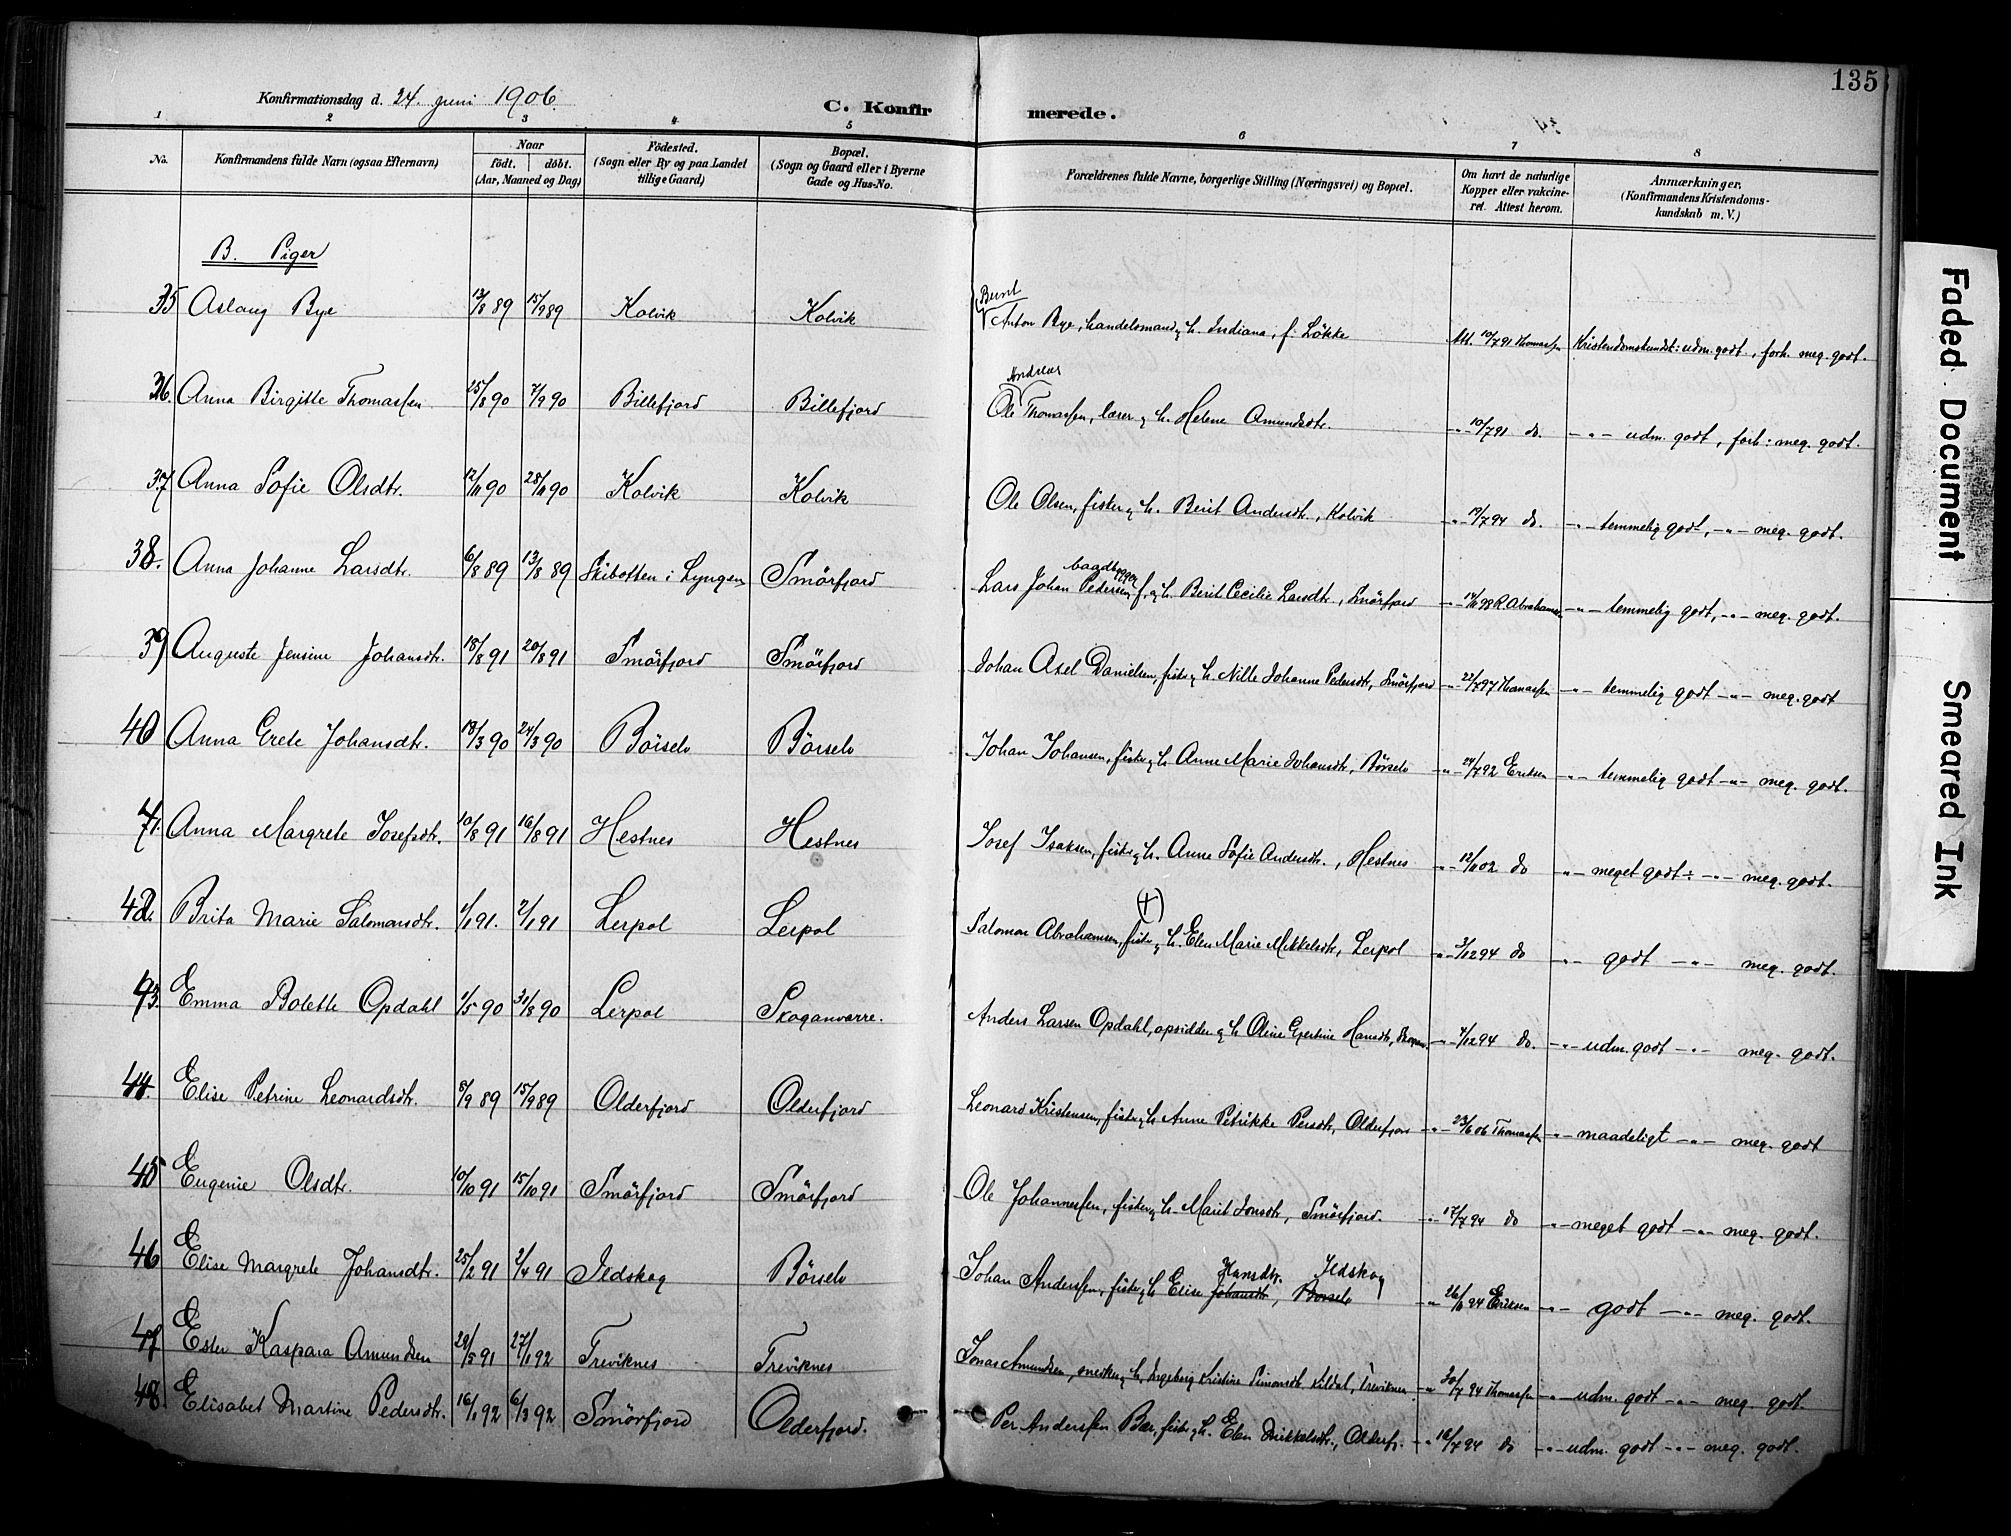 135
Konfirmationsdag d. 24. juni 1906.
C. Konfirmerede.
1 2 3 4 5 6 7 8
No.
Konfirmandens fulde Navn (ogsaa Efternavn)
Naar
födt. döbt.
(Aar, Maaned og Dag)
Födested.
(Sogn eller By og paa Landet
tillige Gaard)
Bopæl.
(Sogn og Gaard eller i Byerne
Gade og Hus-No.
Forældrenes fulde Navne, borgerlige Stilling (Næringsvei) og Bopæl.
Om havt de naturlige
Kopper eller vakcine-
ret. Attest herom.
Anmærkninger.
(Konfirmandens Kristendoms-
kundskab m. V.)
B. Piger
35 Aslaug Bye 13/8 89 15/9 89 Kolvik Kolvik Bernt Anton Bye, handelsmand g. h. Indiana, f. Lökke Att. 10/7 91 Thomassen Kristendomskundsk: udm. godt, forh. meg. godt.
36. Anna Birgitte Thomassen 25/8 90 7/9 90 Billefjord Billefjord Ole Andreas Thomassen, lærer g. h. Helene Amundsdtr. -"- 10/7 91 do. -"- udm. godt, forh: meg. godt.
37. Anna Sofie Olsdtr. 12/11 90 28/11 90 Kolvik Kolvik Ole Olsen, fisker g. h. Berit Andersdtr., Kolvik -"- 19/7 94 do. -"- temmelig godt, -"- meg. godt.
38. Anna Johanne Larsdtr. 6/8 89 13/8 89 Skibotten i Lyngen Smörfjord Lars Johan Pedersen, baadbygger f. g. h. Berit Cecilie Larsdtr., Smörfjord -"- 14/11 98 R. Abrahamsen -"- temmelig godt, -"- meg. godt.
39 Auguste Jensine Johansdtr. 18/8 91 20/8 91 Smörfjord Smörfjord Johan Axel Danielsen, fisker g. h. Nille Johanne Pedersdtr, Smörfjord -"- 22/7 97 Thomassen -"- temmelig godt -"- meg. godt
40 Anna Grete Johansdtr. 18/3 90 24/3 90 Börselv Börselv Johan Johansen, fisker g. h. Anne Marie Johansdtr, Börselv -"- 24/7 92 Eriksen -"- temmelig godt -"- meg. godt.
41. Anna Margrete Josefsdtr. 10/8 91 16/8 91 Hestnes Hestnes Josef Isaksen, fisker g. h. Anne Sofie Andersdtr., Hestnes -"- 12/11 02 do -"- meget godt: -"- meg. godt.
42. Brita Marie Salomonsdtr. 1/1 91. 2/1 91 Lerpol Lerpol Salomon Abrahamsen, fisker g. h. Elen Marie Mikkelsdtr, (+) Lerpol -"- 3/12 94 do -"- godt -"- meg. godt.
43. Emma Bolette Opdahl 1/5 90 31/8 90 Lerpol Skoganvarre. Anders Larsen Opdahl, opsidder g. h. Oline Gjertine Hansdtr, -"- 4/12 94 do. -"- udm. godt -"- meg. godt.
44. Elise Petrine Leonardsdtr. 8/9 89 15/9 89 Olderfjord Olderfjord Leonard Kristensen, fisker g. h. Anne Petrikke Persdtr, Olderfjord -"- 23/6 06 Thomassen -"- maadeligt -"- meg. godt
45 Eugenie Olsdtr. 10/10 91 15/10 91 Smörfjord Smörfjord Ole Johannessen, fisker g. h. Marit Jonsdtr, Smörfjord. -"- 17/7 94 do -"- meget godt -"- meg. godt.
46 Elise Margrete Johansdtr. 25/2 91 2/4 91 Ildskog Börselv Johan Anderssen, fisker g. h. Elise Johansdtr Hansdtr., Börselv Ildskog -"- 26/11 94 Eriksen -"- godt -"- meg. godt.
47 Ester Kaspara Amundsen 29/5 91 27/1 92 Treviknes Treviknes Jonas Amundsen, snedker g. h. Ingeberg Kristine Simonsdt. Kildal, Treviknes -"- 20/7 94 Thomassen -"- udm. godt -"- meg. godt.
48 Elisabet Martine Pedersdtr. 16/1 92 6/3 92 Smörfjord Olderfjord. Per Anderssen Bær, fisker g. h. Elen Mikkelsdtr., Olderfj. -"- 16/7 94 do -"- udm. godt -"- meg. godt.
Faded Document
Smeared Ink